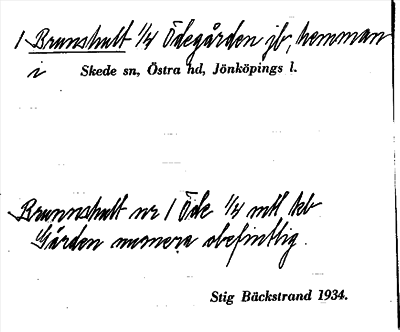 1 Brunshult 1/4 Ödegården jb, hemman
i Skede sn, Östra hd, Jönköpings l.
Brunnshult nr 1 Öde 1/4 mtl kb
Gården numera obefintlig.
Stig Bäckstrand 1934.